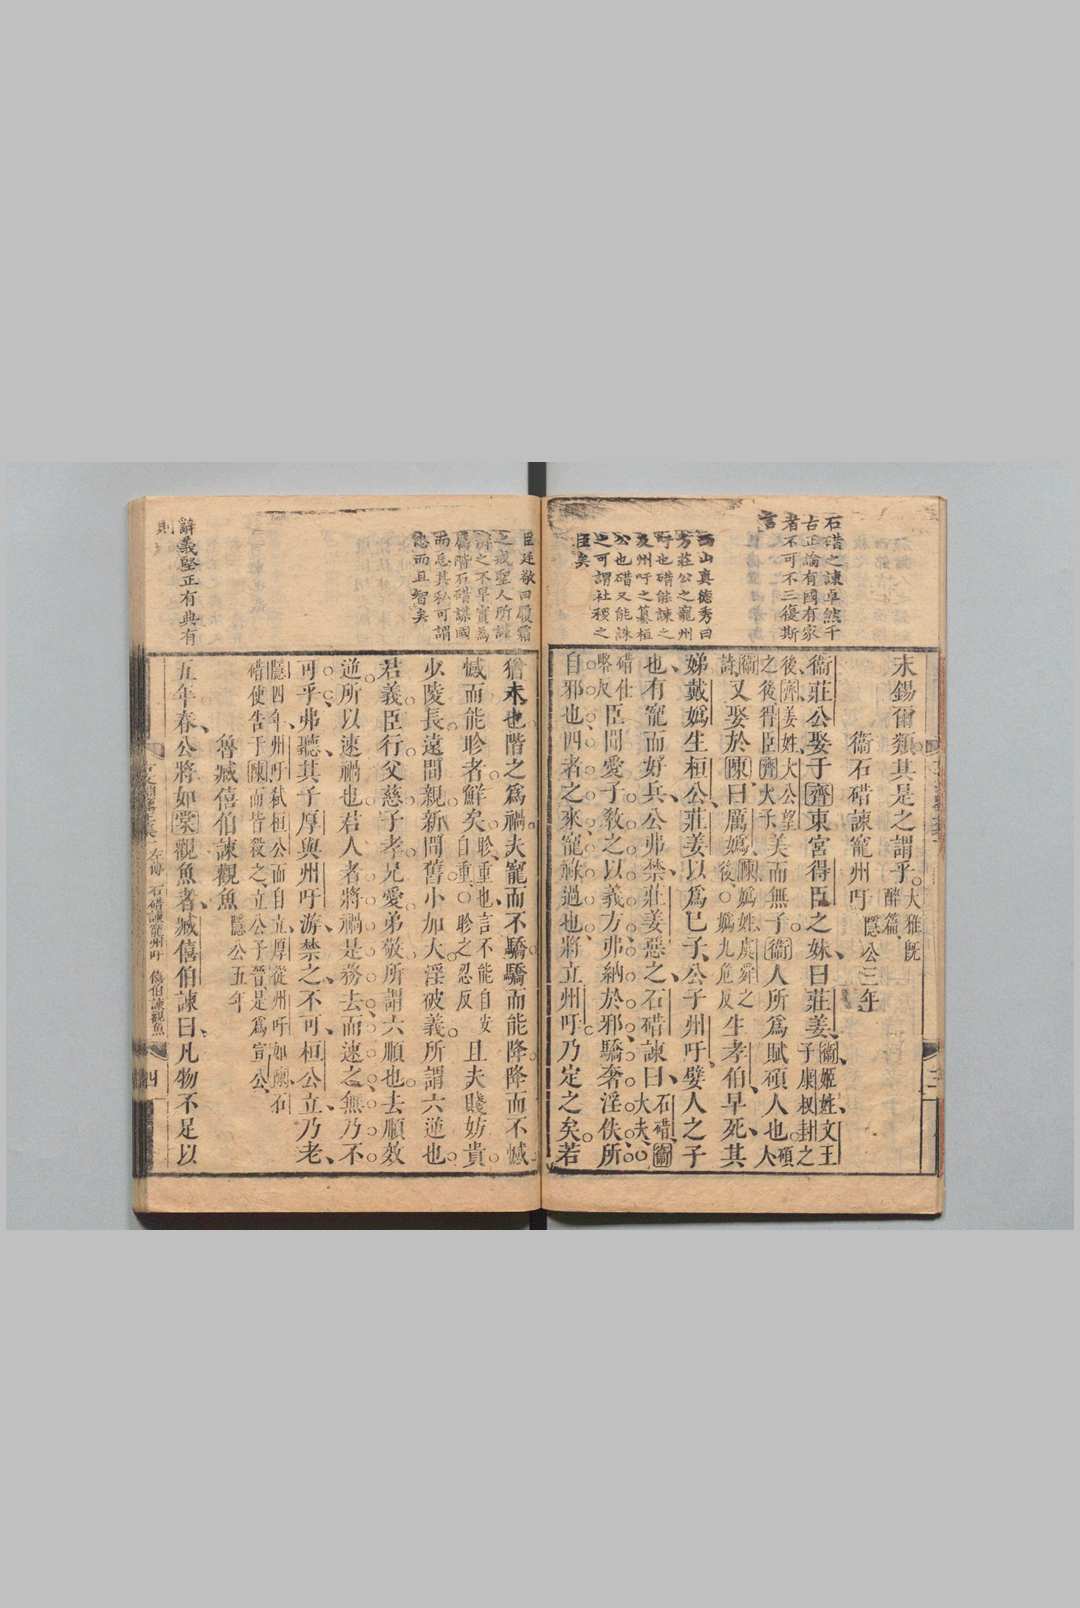 石碏之諫卓然千
古正論有國有家
者不可不三復斯
言
西山真德秀曰
方莊公之寵州
吁也碏能諫之
及州吁之纂桓
公也碏又能誅
之可謂社稷之
臣矣
永錫爾類其是之謂乎大雅旣
醉篇
衞石碏諫寵州吁隱公三年
衞莊公娶于齊東宮得臣之妹曰莊姜衞姬姓文王
子康叔封之
後齊姜姓大公望
之後得臣齊大子美而無子衞人所爲賦碩人也碩
人
衞
詩又娶於陳曰厲嬀陳嬀姓虞舜之
後嬀九危反生孝伯早死其
娣戴嬀生桓公莊姜以爲巳子公子州吁嬖人之子
也有寵而好兵公弗禁莊姜惡之石碏諫曰石碏衞
大夫
碏七
畧反臣聞愛子敎之以義方弗納於邪驕奢淫佚所
自邪也四者之來寵祿過也將立州吁乃定之矣若
臣廷敬曰履霜
之戒聖人所謹
辯之不早實爲
厲階石碏謀國
而忘其私可謂
忠而且智矣
猶未也階之爲禍夫寵而不驕驕而能降降而不憾
憾而能眕者鮮矣眕重也言不能自安
自重眕之忍反且夫賤妨貴
少陵長遠間親新間舊小加大淫破義所謂六逆也
君義臣行父慈子孝兄愛弟敬所謂六順也去順效
逆所以速禍也君人者將禍是務去而速之無乃不
可乎弗聽其子厚與州吁游禁之不可桓公立乃老
隱四年州吁弑桓公而自立厚從州吁如陳石
碏使告于陳而皆殺之立公子晉是爲宣公
魯臧僖伯諫觀魚隱公五年
五年春公將如棠觀魚者臧僖伯諫曰凡物不足以
辭義堅正有典有
則
左傳 石碏諫寵州吁 僖伯諫觀魚
四